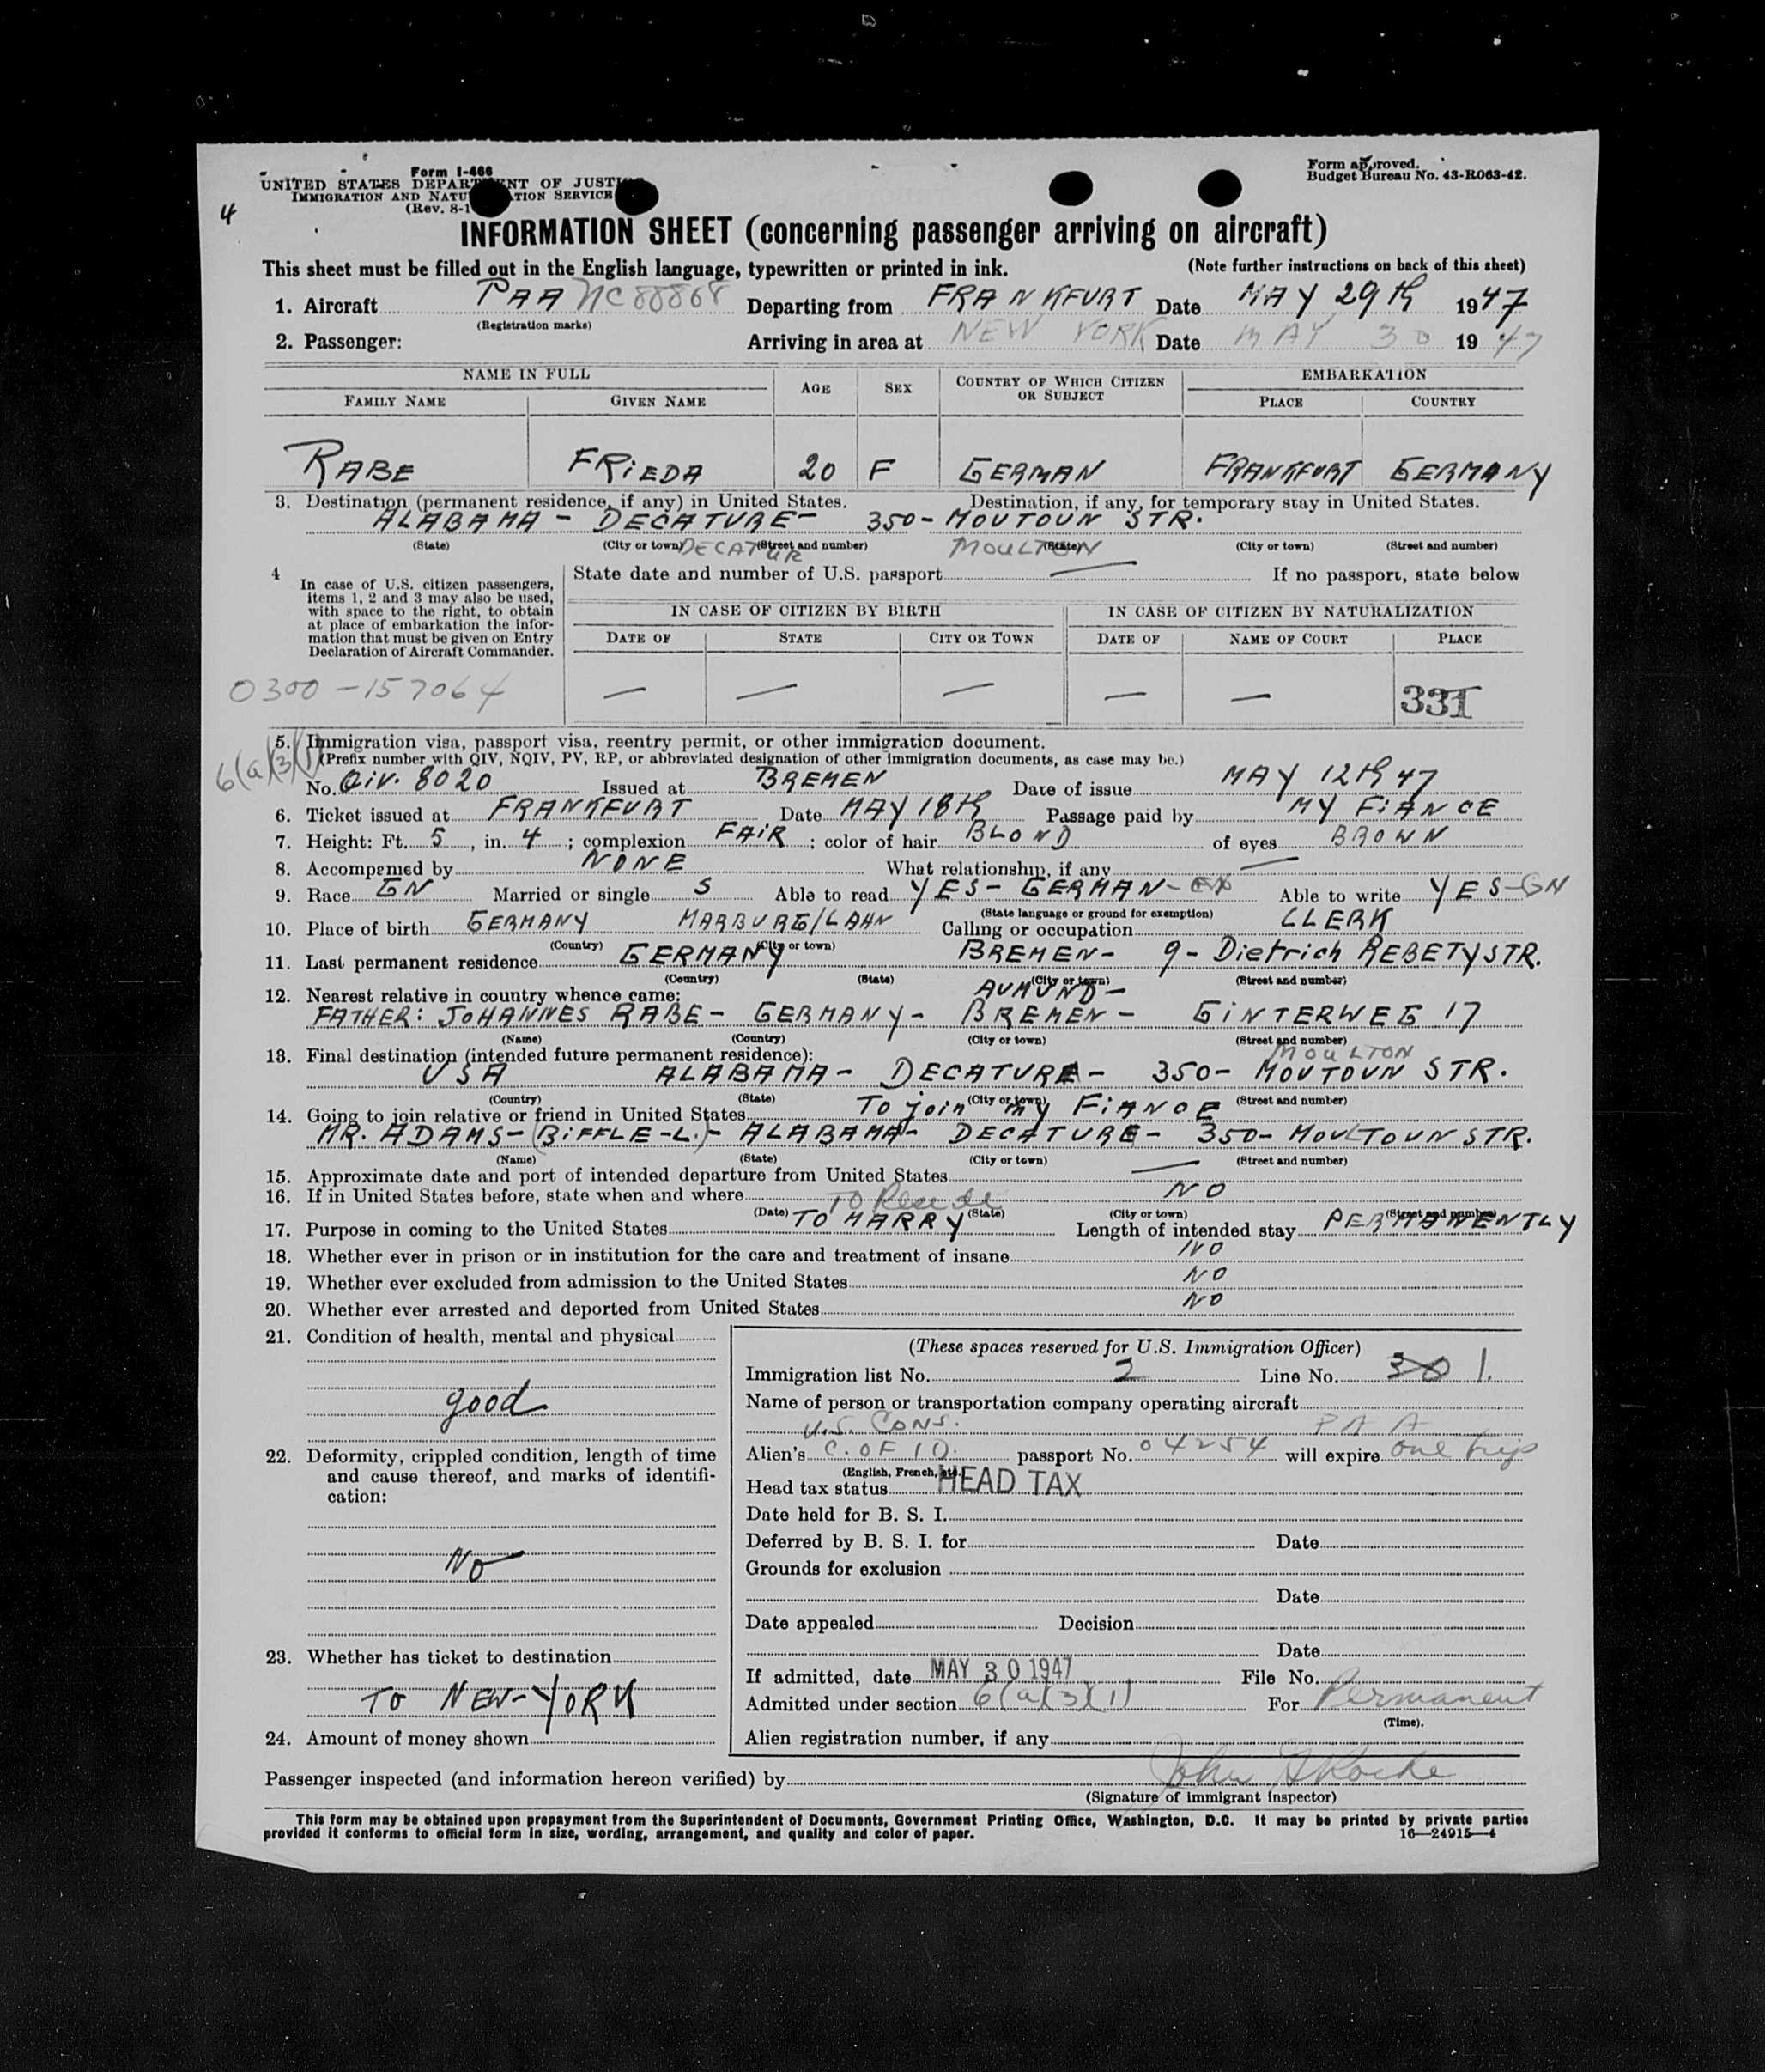 Form I-466
UNITED STATES DEPARTMENT OF JUSTICE
IMMIGRATION AND NATURALIZATION SERVICE
(Rev. 8-1
Form approved.
Budget Bureau No. 43-R063-42.
4
INFORMATION SHEET (concerning passenger arriving on aircraft)
This sheet must be filled out in the English language, typewritten or printed in ink. (Note further instructions on back of this sheet)
1. Aircraft PAA NC 88868 Departing from FRANKFURT Date MAY 29th 1947
(Registration marks)
2. Passenger: Arriving in area at NEW YORK Date MAY 30 1947
NAME IN FULL AGE SEX COUNTRY OF WHICH CITIZEN OR SUBJECT EMBARKATION
FAMILY NAME GIVEN NAME PLACE COUNTRY
RABE FRIEDA 20 F GERMAN FRANKFURT GERMANY
3. Destination (permanent residence, if any) in United States. Destination, if any, for temporary stay in United States.
ALABAMA - DECATURE - 350 - MOUTOUN STR.
(State) (City or town) (Street and number) (State) (City or town) (Street and number)
DECATUR MOULTON
4 In case of U.S. citizen passengers, items 1, 2 and 3 may also be used, with space to the right, to obtain at place of embarkation the information that must be given on Entry Declaration of Aircraft Commander.
State date and number of U.S. passport — If no passport, state below
IN CASE OF CITIZEN BY BIRTH IN CASE OF CITIZEN BY NATURALIZATION
DATE OF STATE CITY OR TOWN DATE OF NAME OF COURT PLACE
0300-157064 — — — — — 331
5. Immigration visa, passport visa, reentry permit, or other immigration document.
6(a)(3)(1) (Prefix number with QIV, NQIV, PV, RP, or abbreviated designation of other immigration documents, as case may be.)
No. QiV. 8020 Issued at BREMEN Date of issue MAY 12th 47
6. Ticket issued at FRANKFURT Date MAY 18th Passage paid by MY FIANCE
7. Height: Ft. 5, in. 4; complexion FAIR; color of hair BLOND of eyes BROWN
8. Accompanied by NONE What relationship, if any —
9. Race GN Married or single S Able to read YES - GERMAN - Able to write YES - GN
(State language or ground for exemption)
10. Place of birth GERMANY MARBURG/LAHN Calling or occupation CLERK
(Country) (City or town)
11. Last permanent residence GERMANY BREMEN - 9 - Dietrich REBETYSTR.
(Country) (State) (City or town) (Street and number)
12. Nearest relative in country whence came: AUMUND -
FATHER: JOHANNES RABE - GERMANY - BREMEN - GINTERWEG 17
(Name) (Country) (City or town) (Street and number)
13. Final destination (intended future permanent residence): MOULTON
USA ALABAMA - DECATURE - 350 - MOUTOUN STR.
(Country) (State) (City or town) (Street and number)
14. Going to join relative or friend in United States To join my FIANCE
MR. ADAMS - (BIFFLE - L.) - ALABAMA - DECATURE - 350 - MOULTOUN STR.
(Name) (State) (City or town) (Street and number)
15. Approximate date and port of intended departure from United States —
16. If in United States before, state when and where NO
(Date) (State) (City or town) (Street and number)
TO Reside
17. Purpose in coming to the United States TO MARRY Length of intended stay PERMANENTLY
18. Whether ever in prison or in institution for the care and treatment of insane NO
19. Whether ever excluded from admission to the United States NO
20. Whether ever arrested and deported from United States NO
21. Condition of health, mental and physical
good
22. Deformity, crippled condition, length of time and cause thereof, and marks of identification:
No
23. Whether has ticket to destination
TO NEW-YORK
24. Amount of money shown
(These spaces reserved for U.S. Immigration Officer)
Immigration list No. 2 Line No. 30 1.
Name of person or transportation company operating aircraft
U.S. CONS. PAA
Alien's C. OF ID. passport No. 04254 will expire one trip
(English, French, etc.)
Head tax status HEAD TAX
Date held for B. S. I.
Deferred by B. S. I. for Date
Grounds for exclusion
Date
Date appealed Decision
Date
If admitted, date MAY 30 1947 File No.
Admitted under section 6(a)(3)(1) For Permanent
(Time).
Alien registration number, if any
Passenger inspected (and information hereon verified) by John
(Signature of immigrant inspector)
This form may be obtained upon prepayment from the Superintendent of Documents, Government Printing Office, Washington, D.C. It may be printed by private parties
provided it conforms to official form in size, wording, arrangement, and quality and color of paper. 16—24915-4